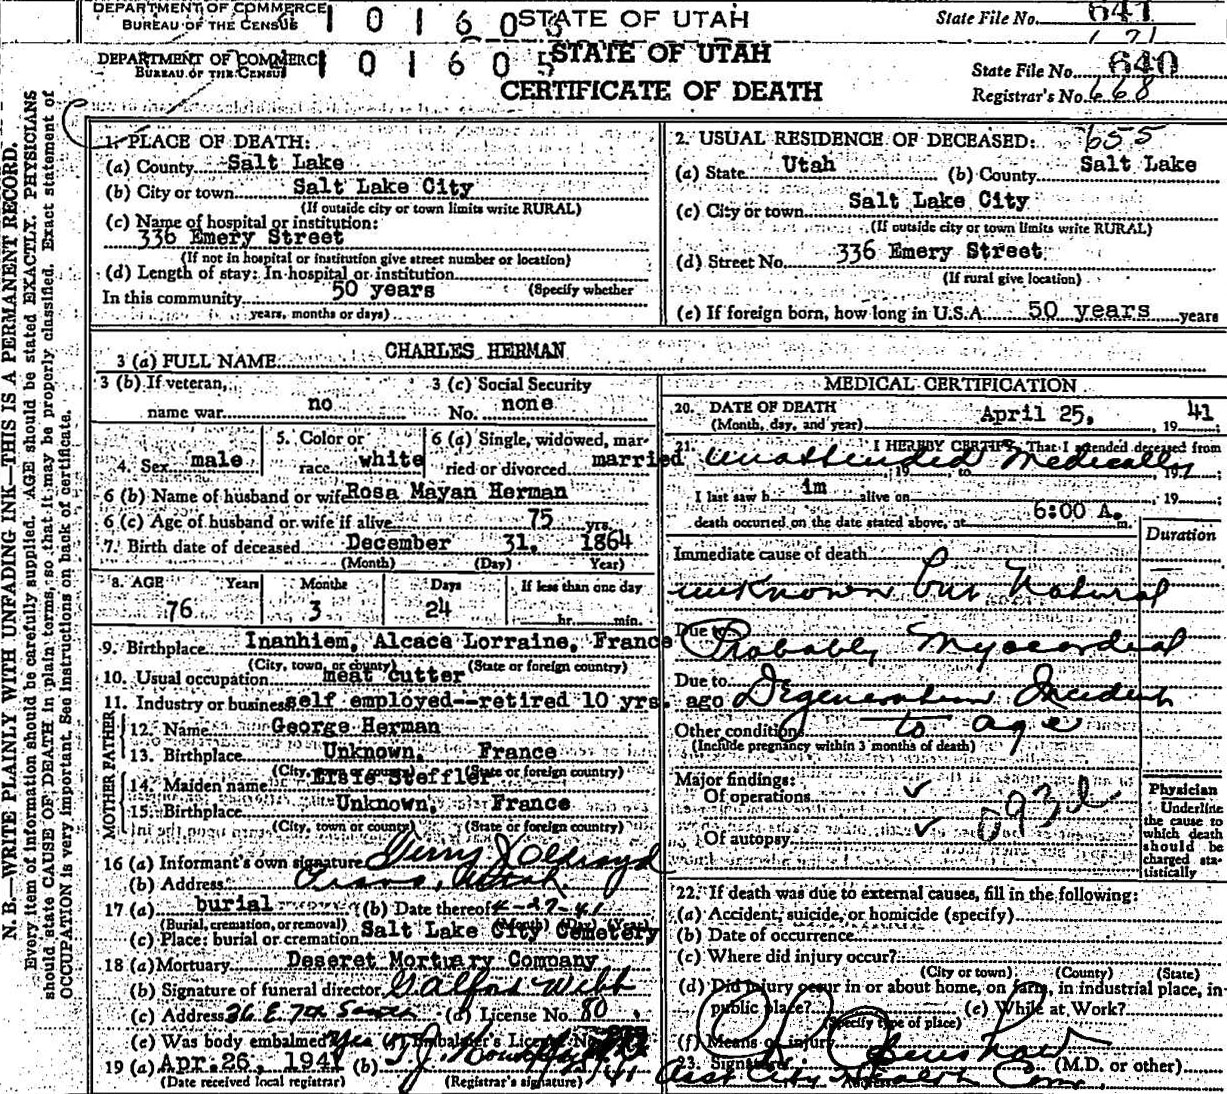 DEPARTMENT OF COMMERCE
BUREAU OF THE CENSUS
1 0 1 6 0 5 STATE OF UTAH
State File No. 641
DEPARTMENT OF COMMERCE
BUREAU OF THE CENSUS
1 0 1 6 0 5 STATE OF UTAH
CERTIFICATE OF DEATH
State File No. 640
Registrar's No. 668
N. B.—WRITE PLAINLY WITH UNFADING INK—THIS IS A PERMANENT RECORD.
Every item of information should be carefully supplied. AGE should be stated EXACTLY. PHYSICIANS
should state CAUSE OF DEATH in plain terms, so that it may be properly classified. Exact statement of
OCCUPATION is very important. See instructions on back of certificate.
1. PLACE OF DEATH:
(a) County Salt Lake
(b) City or town Salt Lake City
(If outside city or town limits write RURAL)
(c) Name of hospital or institution:
336 Emery Street
(If not in hospital or institution give street number or location)
(d) Length of stay: In hospital or institution
In this community 50 years (Specify whether
years, months or days)
2. USUAL RESIDENCE OF DECEASED: 655
(a) State Utah (b) County Salt Lake
(c) City or town Salt Lake City
(If outside city or town limits write RURAL)
(d) Street No. 336 Emery Street
(If rural give location)
(e) If foreign born, how long in U.S.A. 50 years years
3 (a) FULL NAME CHARLES HERMAN
3 (b) If veteran, name war no
3 (c) Social Security No. none
4. Sex male
5. Color or race white
6 (a) Single, widowed, married or divorced married
6 (b) Name of husband or wife Rosa Mayan Herman
6 (c) Age of husband or wife if alive 75 yrs.
7. Birth date of deceased December 31, 1864
(Month) (Day) Year)
8. AGE Years Months Days If less than one day
76 3 24 hr. min.
9. Birthplace Inanhiem, Alcace Lorraine, France
(City, town, or county) (State or foreign country)
10. Usual occupation meat cutter
11. Industry or business self employed--retired 10 yrs. ago
FATHER
12. Name George Herman
13. Birthplace Unknown, France
(City, town or county) (State or foreign country)
MOTHER
14. Maiden name Elsie Steffler
15. Birthplace Unknown, France
(City, town or county) (State or foreign country)
16 (a) Informant's own signature
(b) Address Utah.
17 (a) burial (b) Date thereof 4-27-41
(Burial, cremation, or removal) (Month) (Day) (Year)
(c) Place: burial or cremation Salt Lake City Cemetery
18 (a) Mortuary Deseret Mortuary Company
(b) Signature of funeral director Galford Webb
(c) Address 36 E. 7th South (d) License No. 80
(e) Was body embalmed? Yes (f) Embalmer's License No.
19 (a) Apr. 26, 1941 (b) T. J.
(Date received local registrar) (Registrar's signature)
MEDICAL CERTIFICATION
20. DATE OF DEATH
(Month, day, and year) April 25, 19 41
21. I HEREBY CERTIFY, That I attended deceased from
Unattended Medically
19 to 19
I last saw h im alive on 19
death occurred on the date stated above, at 6:00 A. m.
Duration
Immediate cause of death
unknown but Natural
Due to Probably Myocardial
Due to Degeneration Incident
to age
Other conditions
(Include pregnancy within 3 months of death)
Major findings:
Of operations ✓
093d
Of autopsy ✓
Physician
Underline
the cause to
which death
should be
charged sta-
tistically
22. If death was due to external causes, fill in the following:
(a) Accident, suicide, or homicide (specify)
(b) Date of occurrence
(c) Where did injury occur?
(City or town) (County) (State)
(d) Did injury occur in or about home, on farm, in industrial place, in
public place? (e) While at Work?
(Specify type of place)
(f) Means of injury
23. Signature (M.D. or other)
Asst City Health Com.